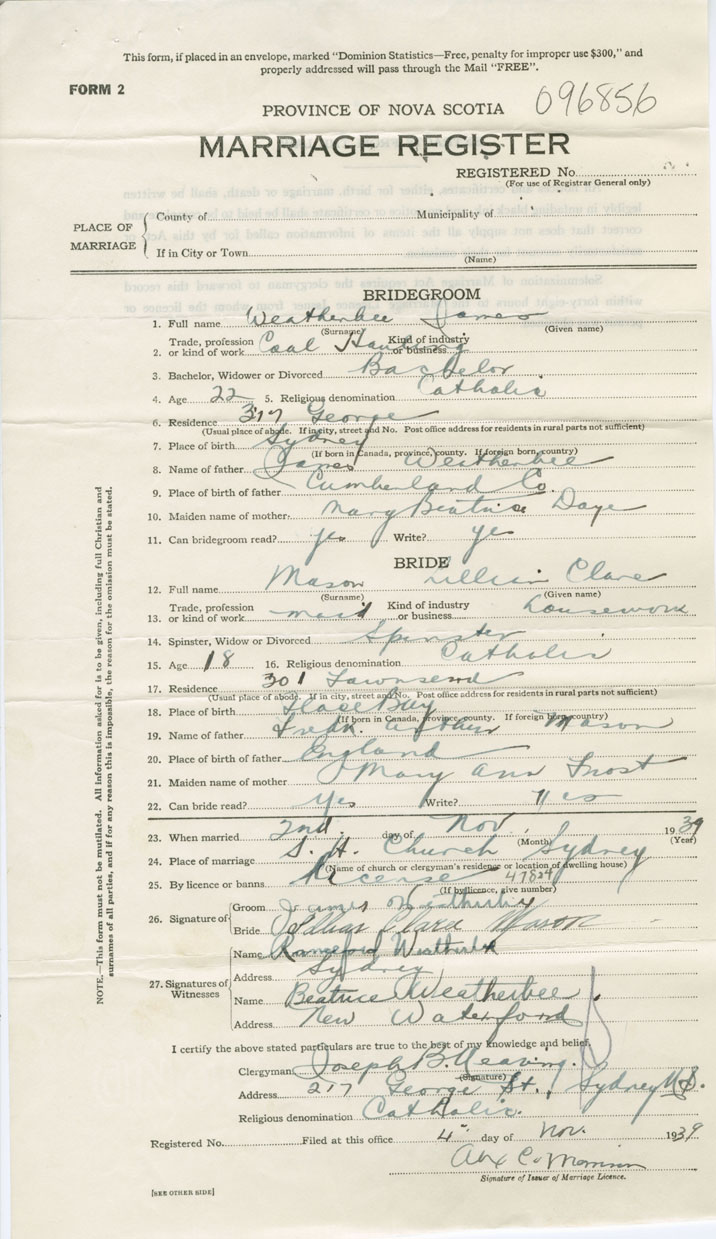 This form, if placed in an envelope, marked "Dominion Statistics—Free, penalty for improper use $300," and
properly addressed will pass through the Mail "FREE".
FORM 2
PROVINCE OF NOVA SCOTIA 096856
MARRIAGE REGISTER
REGISTERED No.
(For use of Registrar General only)
PLACE OF MARRIAGE
County of Municipality of
If in City or Town
(Name)
BRIDEGROOM
1. Full name Weatherbee James
(Surname) (Given name)
2. Trade, profession or kind of work Coal Handling Kind of industry or business
3. Bachelor, Widower or Divorced Bachelor
4. Age 22 5. Religious denomination Catholic
6. Residence 317 George
(Usual place of abode. If in city, street and No. Post office address for residents in rural parts not sufficient)
7. Place of birth Sydney
(If born in Canada, province, county. If foreign born, country)
8. Name of father James Weatherbee
9. Place of birth of father Cumberland Co.
10. Maiden name of mother Mary Beatrice Daye
11. Can bridegroom read? yes Write? yes
BRIDE
12. Full name Mason Lillian Clare
(Surname) (Given name)
13. Trade, profession or kind of work maid Kind of industry or business housework
14. Spinster, Widow or Divorced Spinster
15. Age 18 16. Religious denomination Catholic
17. Residence 301 Townsend
(Usual place of abode. If in city, street and No. Post office address for residents in rural parts not sufficient)
18. Place of birth Glace Bay
(If born in Canada, province, county. If foreign born, country)
19. Name of father Fredk. Arthur Mason
20. Place of birth of father England
21. Maiden name of mother Mary Ann Frost
22. Can bride read? Yes Write? Yes
23. When married 2nd. day of Nov. 1939
(Month) (Year)
24. Place of marriage S. H. Church Sydney
(Name of church or clergyman's residence or location of dwelling house)
25. By licence or banns License 47824
(If by licence, give number)
26. Signature of
Groom James Weatherby
Bride Lillian Clare Mason
27. Signatures of Witnesses
Name Weatherbee
Address Sydney
Name Beatrice Weatherbee
Address New Waterford
I certify the above stated particulars are true to the best of my knowledge and belief.
Clergyman Joseph B.
(Signature)
Address 217 George St., Sydney N.S.
Religious denomination Catholic.
Registered No. Filed at this office 4" day of Nov. 1939
Alex C. Morrison
Signature of Issuer of Marriage Licence.
[SEE OTHER SIDE]
NOTE.—This form must not be mutilated. All information asked for is to be given, including full Christian and
surnames of all parties, and if for any reason this is impossible, the reason for the omission must be stated.